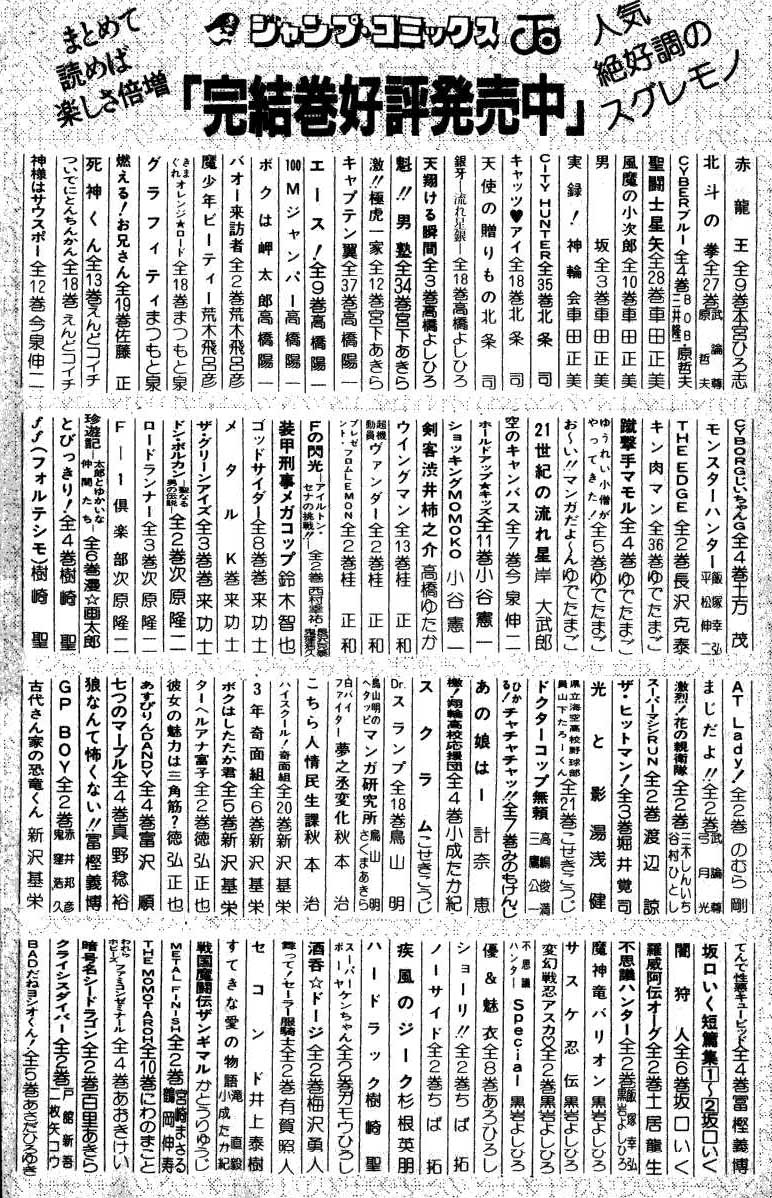 まとめて
読めば
楽しさ倍増
ジャンプ・コミックス
人気
絶好調の
スグレモノ
「完結巻好評発売中」
赤龍王 全9巻 本宮ひろ志
北斗の拳 全27巻 武論尊 原哲夫
CYBERブルー 全4巻 BOB 三井隆一 原哲夫
聖闘士星矢 全28巻 車田正美
風魔の小次郎 全10巻 車田正美
男坂 全3巻 車田正美
実録!神輪会 車田正美
CITY HUNTER 全35巻 北条司
キャッツ♥アイ 全18巻 北条司
天使の贈りもの 北条司
銀牙―流れ星 銀― 全18巻 高橋よしひろ
天翔ける瞬間 全3巻 高橋よしひろ
魁!!男塾 全34巻 宮下あきら
激!!極虎一家 全12巻 宮下あきら
キャプテン翼 全37巻 高橋陽一
エース! 全9巻 高橋陽一
100Mジャンパー 高橋陽一
ボクは岬太郎 高橋陽一
バオー来訪者 全2巻 荒木飛呂彦
魔少年ビーティー 荒木飛呂彦
きまぐれオレンジ★ロード 全18巻 まつもと泉
グラフィティ まつもと泉
燃える!お兄さん 全19巻 佐藤正
死神くん 全13巻 えんどコイチ
ついでにとんちんかん 全18巻 えんどコイチ
神様はサウスポー 全12巻 今泉伸二
CYBORGじいちゃんG 全4巻 土方茂
モンスターハンター 飯塚幸弘 平松伸二
THE EDGE 全2巻 長沢克泰
キン肉マン 全36巻 ゆでたまご
蹴撃手マモル 全4巻 ゆでたまご
ゆうれい小僧がやってきた! 全5巻 ゆでたまご
お〜い!!マンガだよ〜ん ゆでたまご
21世紀の流れ星 岸大武郎
空のキャンバス 全7巻 今泉伸二
ホールドアップ★キッズ 全11巻 小谷憲一
ショッキングMOMOKO 小谷憲一
剣客渋井柿之介 高橋ゆたか
ウイングマン 全13巻 桂正和
超機動員ヴァンダー 全2巻 桂正和
プレゼント・フロムLEMON 全2巻 桂正和
Fの閃光―アイルトン・セナの挑戦!!― 全2巻 西村幸祐
装甲刑事メガコップ 鈴木智也
ゴッドサイダー 全8巻 巻来功士
メタルK 巻来功士
ザ・グリーンアイズ 全3巻 巻来功士
ドン・ボルカン―聖なる男の伝説― 全2巻 次原隆二
ロードランナー 全3巻 次原隆二
F―1倶楽部 次原隆二
珍遊記―太郎とゆかいな仲間たち― 全6巻 漫☆画太郎
とびっきり! 全4巻 樹崎聖
ff(フォルテシモ) 樹崎聖
AT Lady! 全2巻 のむら剛
まじだよ!! 全2巻 武論尊 弓月光
激烈!花の親衛隊 全2巻 三木しんいち 谷村ひとし
スーパーマシンRUN 全2巻 渡辺諒
ザ・ヒットマン! 全3巻 堀井覚司
光と影 湯浅健
県立海空高校野球部員山下たろーくん 全21巻 こせきこうじ
ドクターコップ無頼 高嶋俊満 三鷹公一
ひかる!チャチャチャッ!! 全7巻 みのもけんじ
あの娘はー 計奈恵
檄!翔輪高校応援団 全4巻 小成たか紀
スクラム こせきこうじ
Dr.スランプ 全18巻 鳥山明
鳥山明のヘタッピマンガ研究所 鳥山明 さくまあきら
白バイファイター 夢之丞変化 秋本治
こちら人情民生課 秋本治
ハイスクール!奇面組 全20巻 新沢基栄
3年奇面組 全6巻 新沢基栄
ボクはしたたか君 全5巻 新沢基栄
ターヘルアナ富子 全2巻 徳弘正也
彼女の魅力は三角筋? 徳弘正也
あすぴりんDANDY 全4巻 富沢順
七つのマーブル 全4巻 真野稔裕
狼なんて怖くない!! 冨樫義博
GP BOY 全2巻 赤井邦彦 鬼窪浩久
古代さん家の恐竜くん 新沢基栄
てんで性悪キューピッド 全4巻 冨樫義博
坂口いく短篇集1〜2 坂口いく
闇狩人 全6巻 坂口いく
羅威阿伝オーグ 全2巻 土居龍生
不思議ハンター 全2巻 飯塚幸弘 黒岩よしひろ
魔神竜バリオン 黒岩よしひろ
サスケ忍伝 黒岩よしひろ
変幻戦忍アスカ♡ 全2巻 黒岩よしひろ
不思議ハンターSpecial 黒岩よしひろ
優&魅衣 全8巻 あろひろし
ショーリ!! 全2巻 ちば拓
ノーサイド 全2巻 ちば拓
疾風のジーク 杉根英朋
ハードラック 樹崎聖
スーパーボーヤケンちゃん 全2巻 ガモウひろし
酒呑☆ドージ 全2巻 梅沢勇人
舞って!セーラー服騎士 全2巻 有賀照人
セコンド 井上泰樹
すてきな愛の物語 滝直毅 小成たか紀
戦国魔闘伝ザンギマル かとうりゅうじ
METAL FINISH 全2巻 宮崎まさる 鶴岡伸寿
THE MOMOTAROH 全10巻 にわのまこと
われらホビーズ ファミコンゼミナール 全4巻 あおきけい
暗号名シードラゴン 全2巻 百里あきら
クライシスダイバー 全2巻 戸舘新吾 二枚矢コウ
BADだねヨシオくん! 全5巻 あさだひろゆき